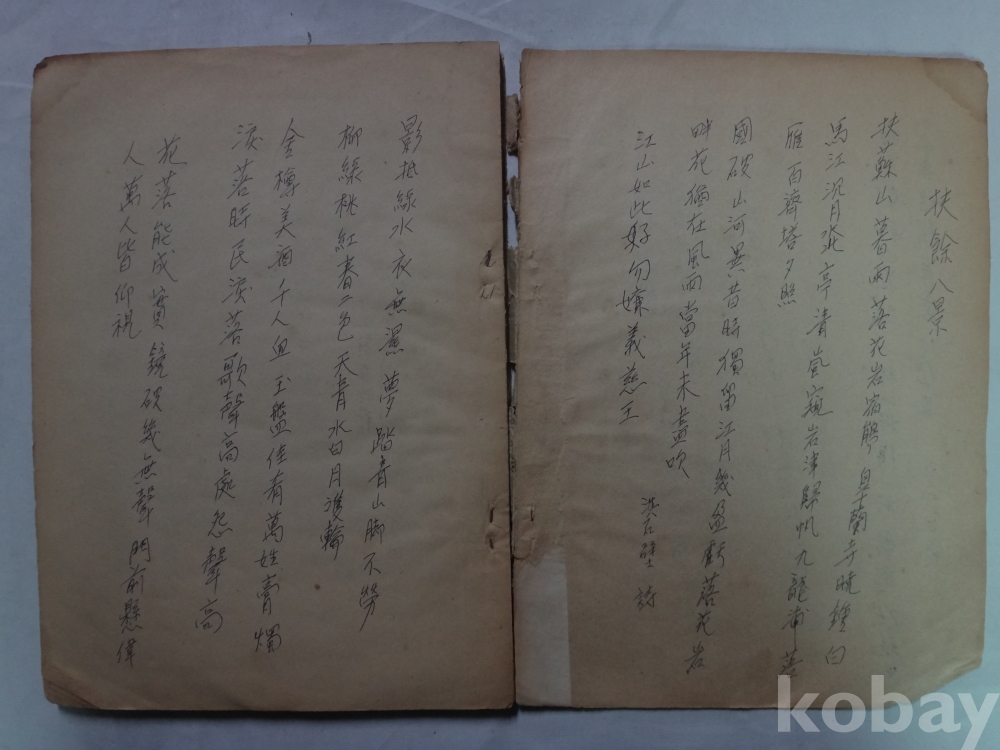 扶餘八景
扶蘇山暮雨 落花岩宿鵑 皐蘭寺暁鍾 白
馬江沉月 水北亭清嵐 窺岩津歸帆 九龍浦落
雁 百濟塔夕照
國破山河異昔時 獨留江月幾盈虧 落花岩
畔花猶在 風雨當年未盡吹
江山如此好 勿嫌義慈王
洪石壁 詩
影抵綠水衣無濕 夢踏青山脚不勞
柳綠桃紅春二色 天青水白月雙輪
金樽美酒千人血 玉盤佳肴萬姓膏 燭
淚落時民淚落 歌聲高處怨聲高
花落能成實 鏡破幾無聲 門前懸偉
人 萬人皆仰視
kobay